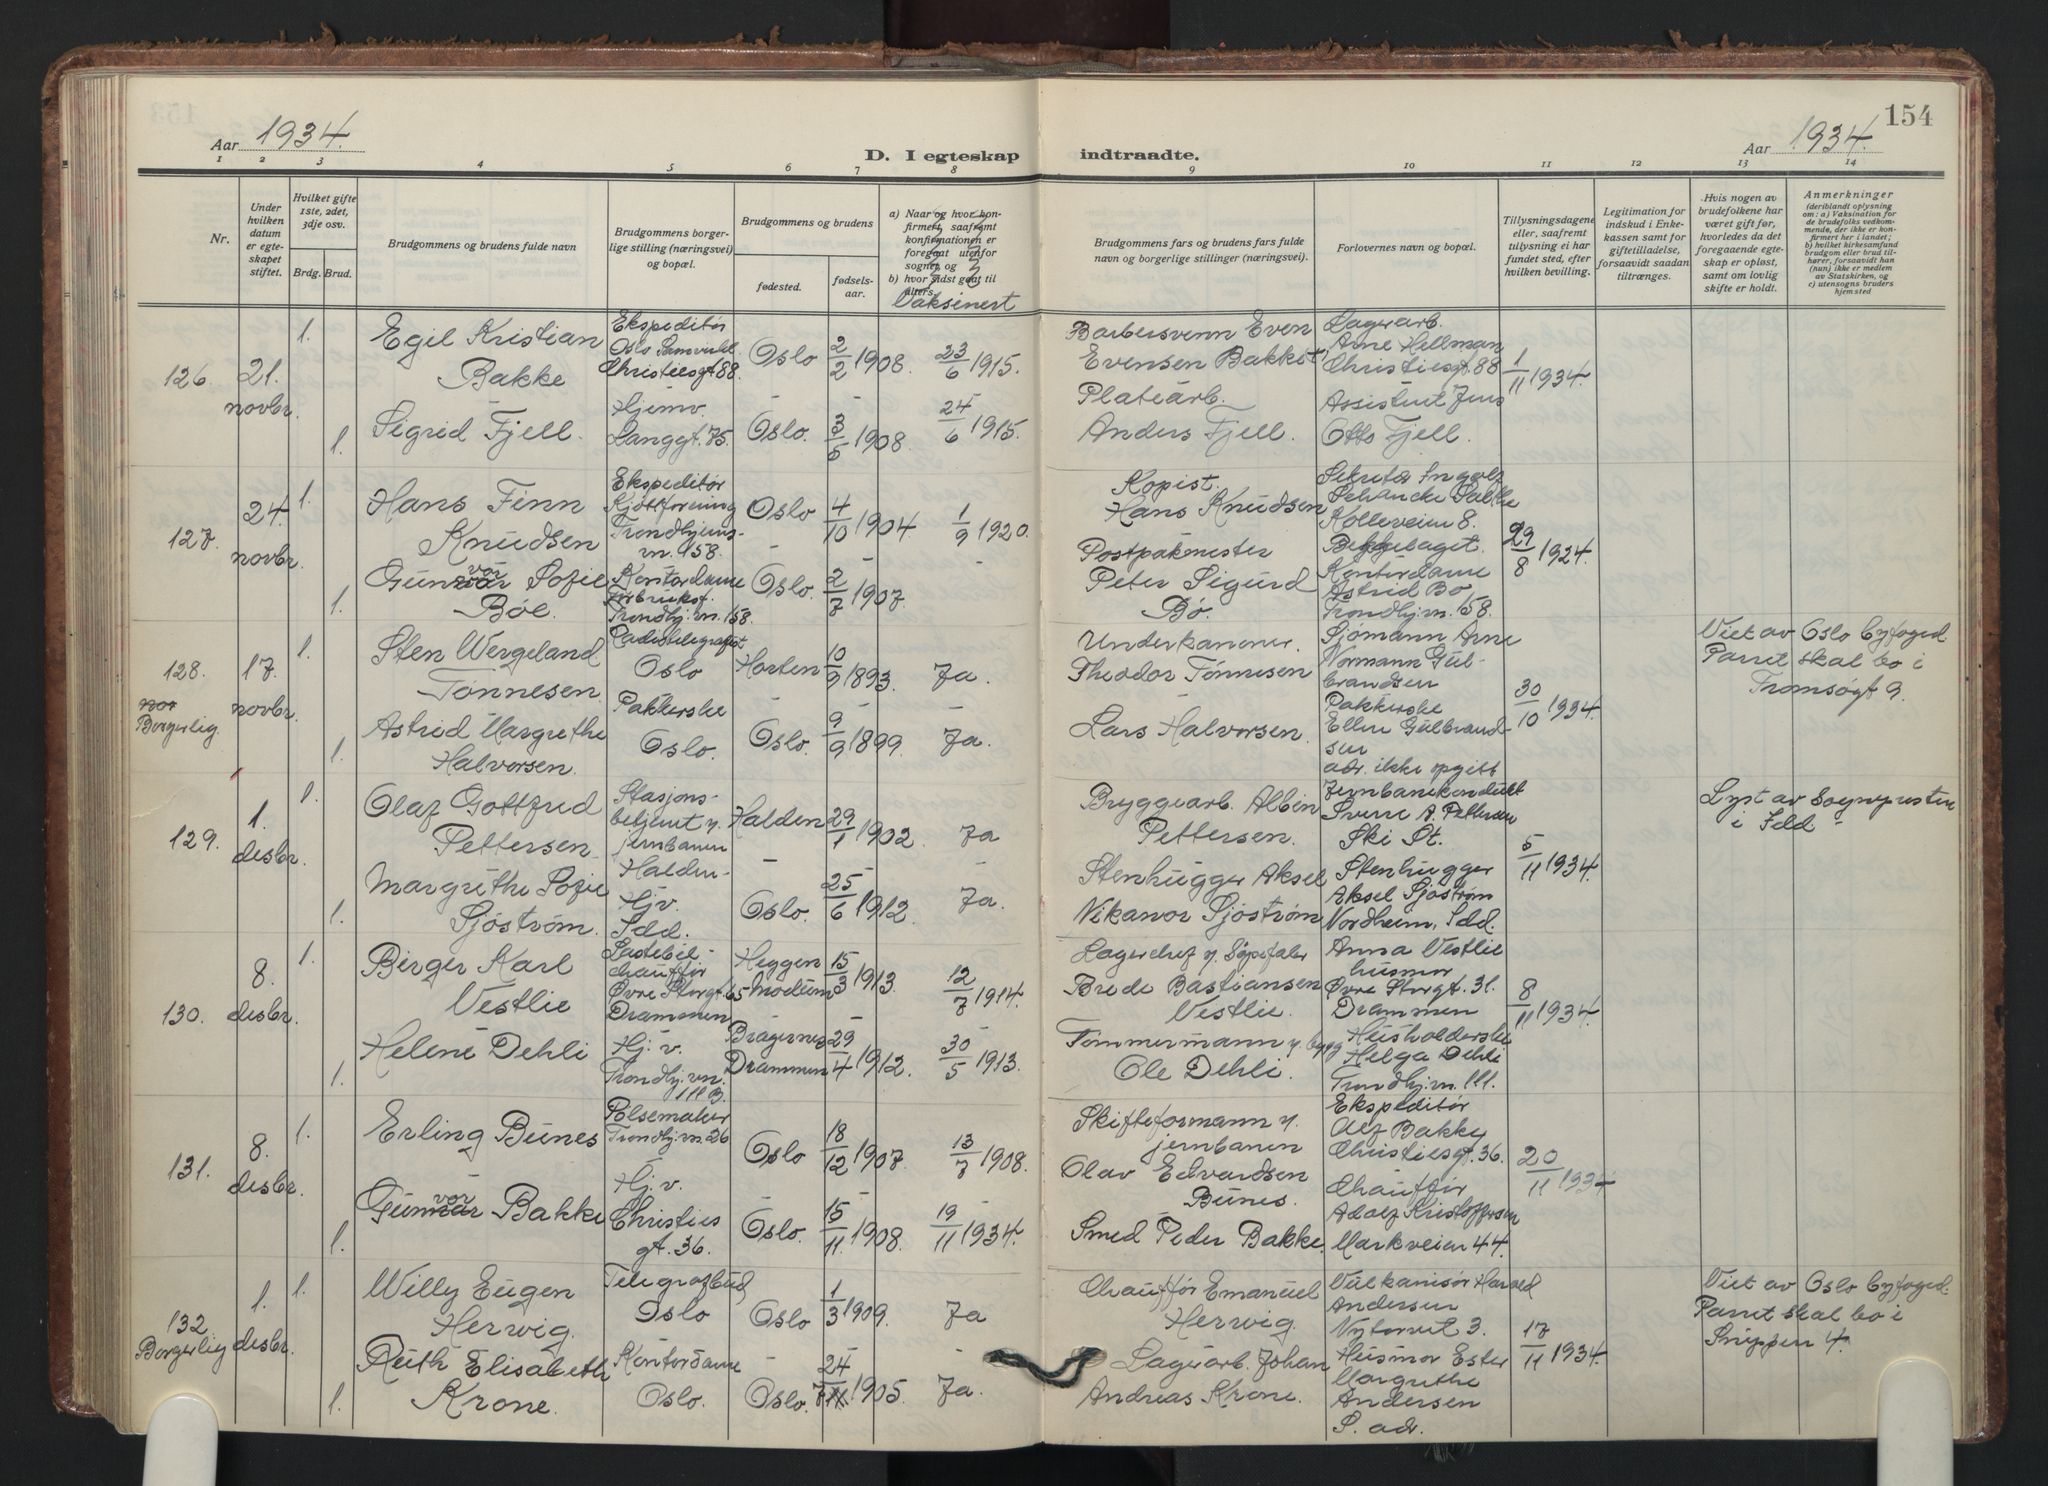 Aar 1934.
D. I egteskap
1 2 3 4 5 6 7 8
Nr.
Under hvilken datum er egteskapet stiftet.
Hvilket gifte 1ste, 2det, 3dje osv.
Brdg. Brud.
Brudgommens og brudens fulde navn
Brudgommens borgerlige stilling (næringsvei) og bopæl.
Brudgommens og brudens
fødested. fødselsaar.
a) Naar og hvor konfirmert, saafremt konfirmationen er foregaat utenfor sognet, og
b) hvor sidst gaat til alters.
Vaksinert
126. 21. novbr.
1. Egil Kristian Bakke
Ekspeditør Oslo Samvirkel. Christiesgt. 88.
Oslo 2/2 1908. 23/6 1915.
1. Sigrid Fjell.
Hjemv. Langgt. 75.
Oslo. 3/5 1908 24/6 1915.
127. 24. novbr.
1. Hans Finn Knudsen
Ekspeditør Kjøttforening Trondhjemsvn. 158.
Oslo 4/10 1904 1/9 1920.
1. Gunvor Sofie Böe
Kontordame Trondhj.vn. 158.
Oslo. 2/7 1907.
128. Borgerlig 17. novbr.
1. Sten Wergeland Tønnesen
Radiotelegrafist Oslo
Horten 10/9 1893. Ja.
1. Astrid Margrethe Halvorsen.
Pakkerske Oslo.
Oslo. 9/9 1899. Ja.
129. 1. desbr.
1. Olaf Gottfred Pettersen
Stasjonsbetjent v. jernbanen Halden
Halden 29/1 1902. Ja
1. Margrethe Sofie Sjöström.
Hjv. Idd.
Oslo. 25/6 1912. Ja.
130. 8. desbr.
1. Birger Karl Vestlie
Lastebilchauffør Øvre Storgt. 65 Drammen
Heggen Modum 15/3 1913. 12/7 1914.
1. Helene Dehli
Hj. v. Trondhj. vn. 111 B.
Bragernes Drammen 29/4 1912. 30/5 1913.
131. 8. desbr.
1. Erling Bunes
Pølsemaker Trondhj.vn. 26
Oslo 18/12 1907. 13/7 1908.
1. Gunvor Bakke
Hj. v. Christies gt. 36.
Oslo. 15/11 1908. 19/11 1934.
132 Borgerlig 1. desbr.
1. Willy Eugen Herwig.
Telegrafbud Oslo
Oslo 1/3 1909. Ja
1. Ruth Elisabeth Krone.
Kontordame Oslo.
Oslo. 24/11 1905. Ja.
indtraadte.
Aar 1934. 154
9 10 11 12 13 14
Brudgommens fars og brudens fars fulde navn og borgerlige stillinger (næringsvei).
Forlovernes navn og bopæl.
Tillysningsdagene eller, saafremt tillysning ei har fundet sted, efter hvilken bevilling.
Legitimation for indskud i Enkekassen samt for giftetilladelse, forsaavidt saadan tiltrænges.
Hvis nogen av brudefolkene har været gift før, hvorledes da det foregaaende egteskap er opløst, samt om lovlig skifte er holdt.
Anmerkninger
(deriblandt oplysning om: a) Vaksination for de brudefolks vedkommende, der ikke er konfirmert her i landet; b) hvilket kirkesamfund brudgom eller brud tilhører, forsaavidt han (hun) ikke er medlem av Statskirken, og c) utensogns bruders hjemsted
Barbersvenn Even Evensen Bakke
Lagerarb. Arne Hellman Christiesgt. 88
1/11 1934.
Platearb. Anders Fjell.
Assistent Jens Otto Fjell.
Kopist. Hans Knudsen
Sekretær Ingolf Schancke Kolleveien 8. Bekkelaget.
29/8 1924.
Postpakmester Peter Sigurd Bø.
Kontordame Astrid Bø Trondhj.vn. 158.
Underkanoner. Theodor Tønnesen
Sjømann Arne Normann Gulbrandsen
30/10 1934.
Viet av Oslo byfoged Parret skal bo i Tromsøgt 9.
Lars Halvorsen.
Pakkerske Ellen Gulbrandsen adr. ikke opgitt
Bryggearb. Albin Pettersen.
Jernbanekonduktør Sverre A. Pettersen Ski St.
5/11 1934.
Lyst av Sognepresten i Idd
Stenhugger Aksel Nikanor Sjöström
Stenhugger Aksel Sjöström Nordheim, Idd.
Lagerchef Brede Bastiansen Vestlie.
Anna Vestlie husmor Øvre Storgt. 31. Drammen
8/11 1934.
Tømmermann v. bygg Ole Dehli.
Husholderske Helga Dehli Trondhj.vn. 111.
Skifteformann v. jernbanen Olav Edvardsen Bunes.
Ekspeditør Alf Bakke Christiesgt. 36.
20/11 1934
Smed Peder Bakke.
Chauffør Adolf Kristoffersen Markveien 44.
Chauffør Emanuel Herwig.
Vulkanisør Harald Andersen Nytorvet 3.
17/11 1934.
Viet av Oslo byfoged. Parret skal bo i Snippen 4.
Lagerarb. Johan Andreas Krone.
Husmor Ester Margrethe Andersen S. adr.